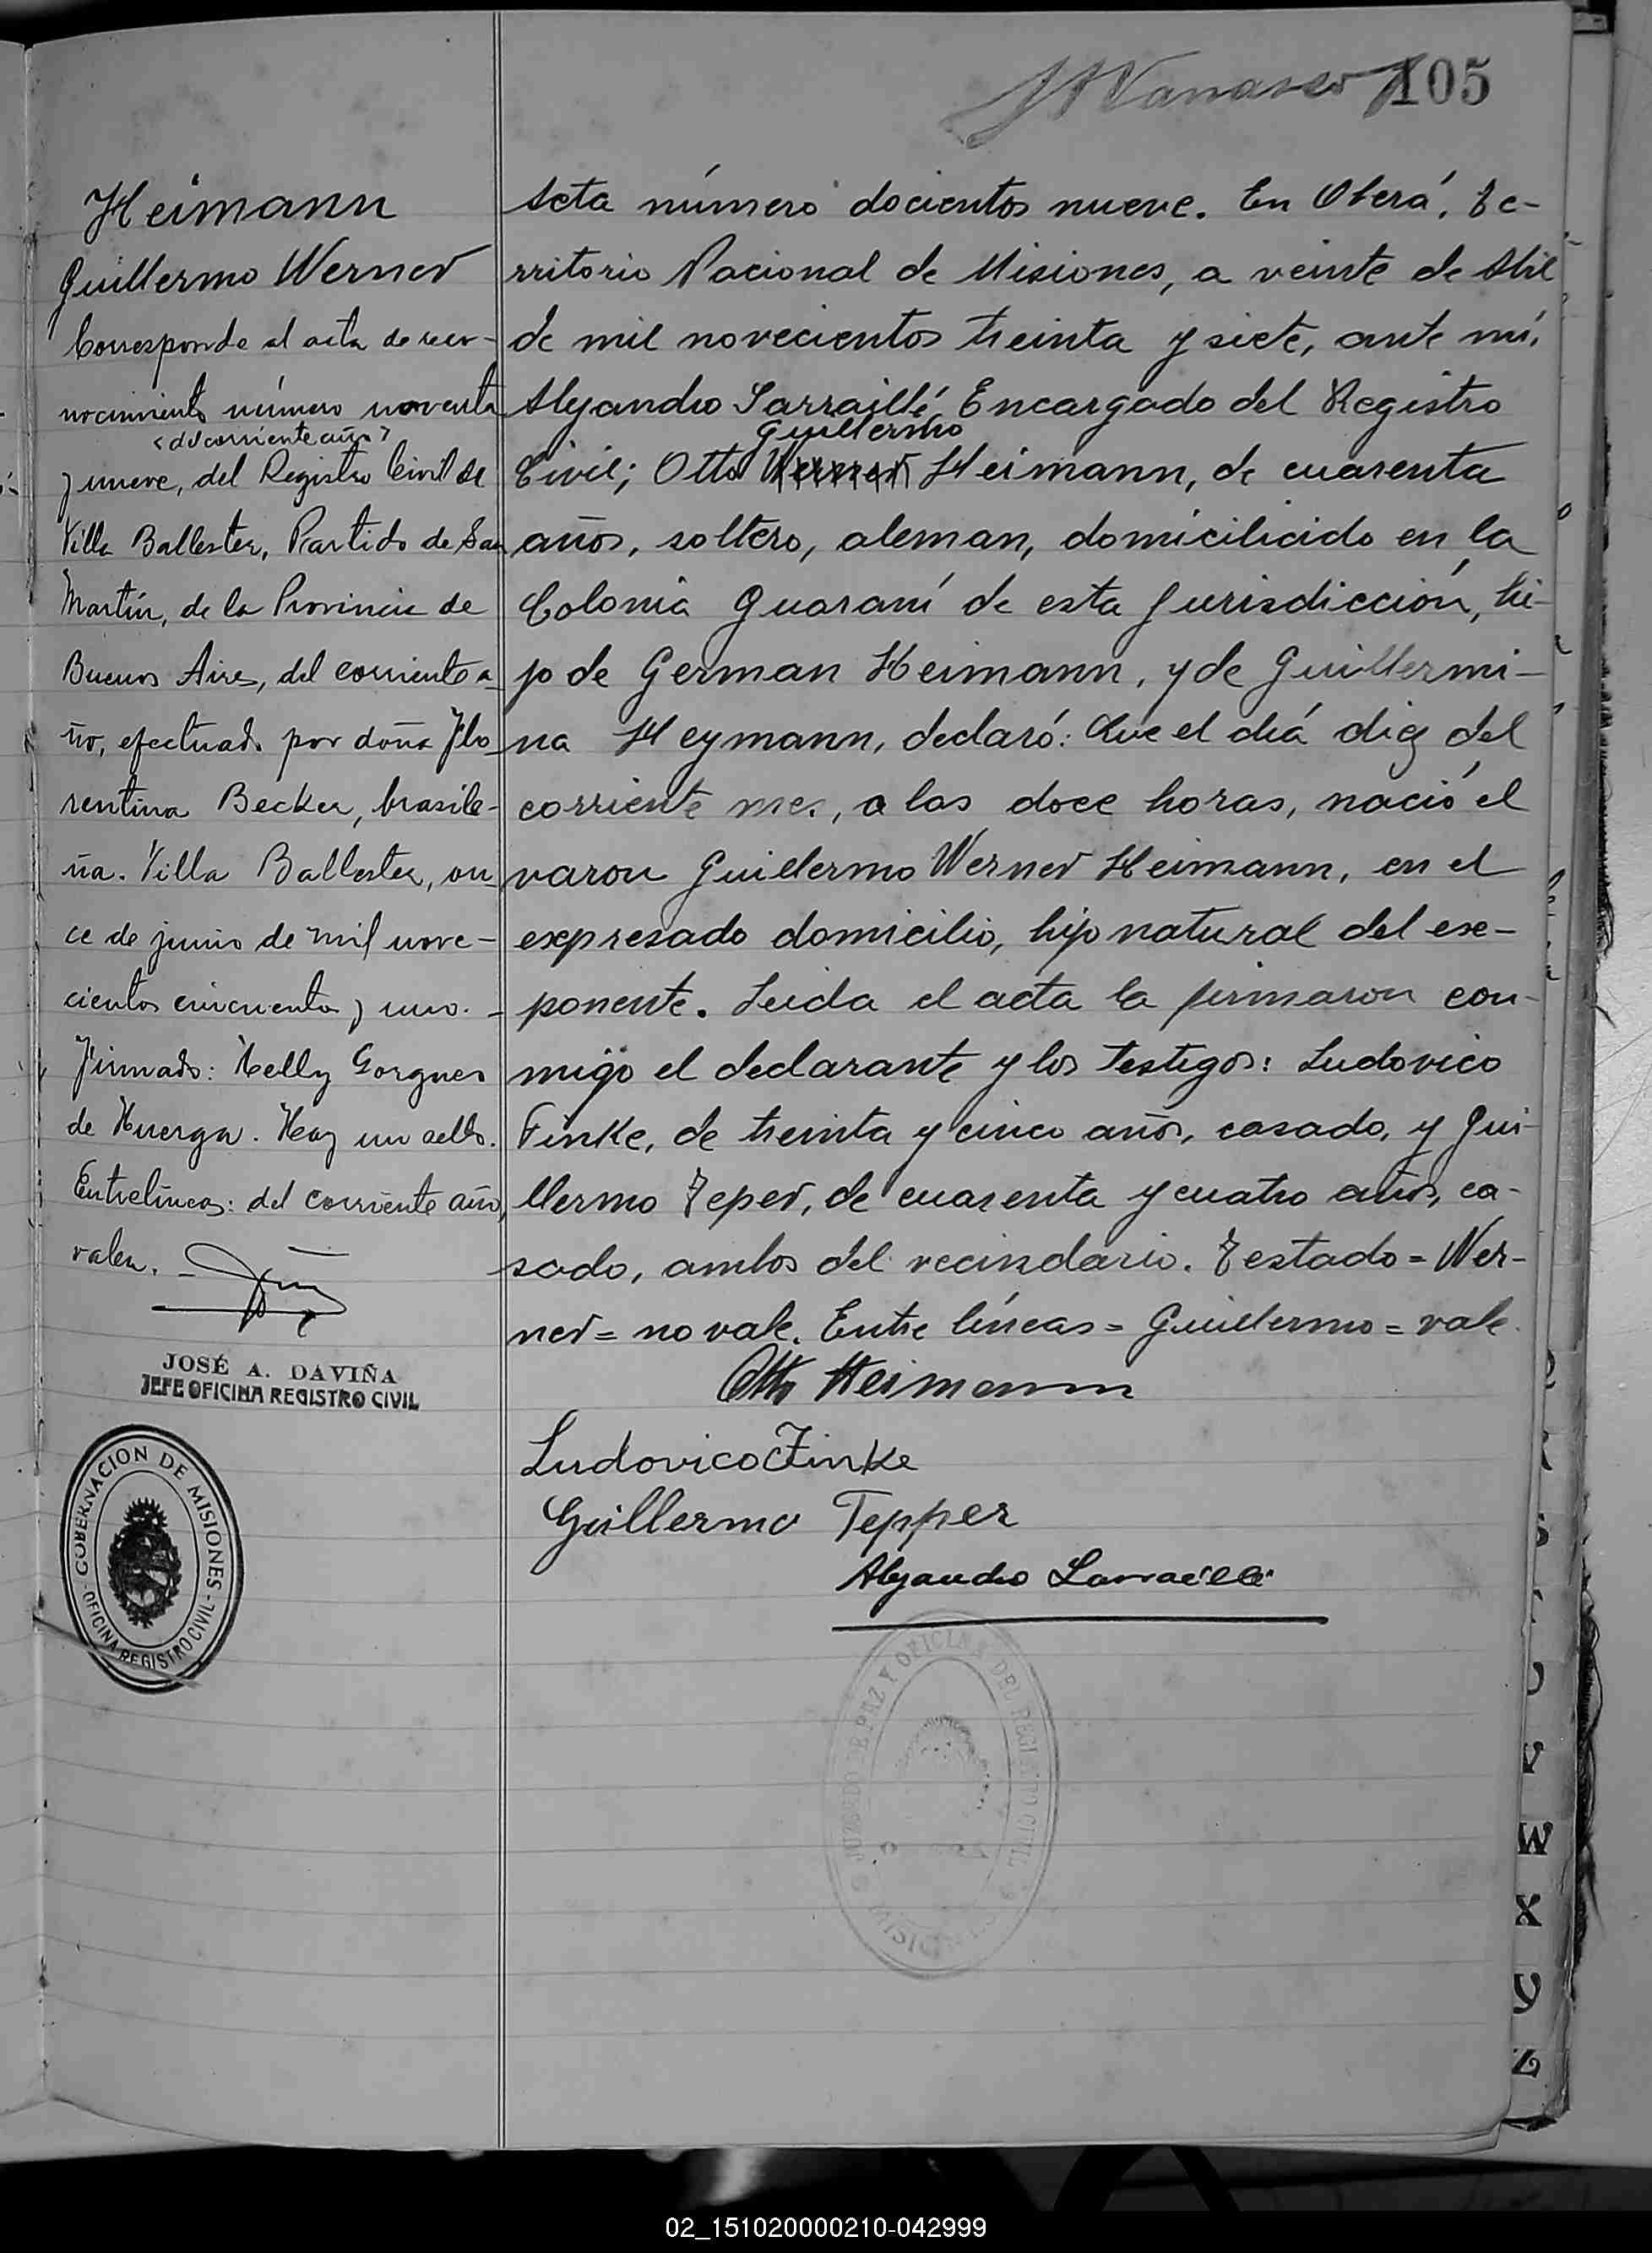 105
Heimann
Guillermo Werner
Corresponde al acta de reco-
nocimiento número noventa
<del corriente año>
y nueve, del Registro Civil de
Villa Ballester, Partido de San
Martín, de la Provincia de
Buenos Aires, del corriente a-
ño, efectuado por doña Flo-
rentina Becker, brasile-
ña. Villa Ballester, on-
ce de junio de mil nove-
cientos cincuenta y uno. -
Firmado: Nelly Gorgues
de Huerga. Hay un sello.
Entrelíneas: del corriente año,
valen. -
JOSÉ A. DAVIÑA
JEFE OFICINA REGISTRO CIVIL
GOBERNACION DE MISIONES
- OFICINA REGISTRO CIVIL -
Acta número docientos nueve. En Oberá, Te-
rritorio Nacional de Misiones, a veinte de Abril
de mil novecientos treinta y siete, ante mí,
Alejandro Larraillé, Encargado del Registro
Guillermo
Civil; Otto Werner Heimann, de cuarenta
años, soltero, aleman, domiciliado en la
Colonia Guaraní de esta jurisdicción, hi-
jo de German Heimann, y de Guillermi-
na Heymann, declaró: Que el día diez del
corriente mes, a las doce horas, nació el
varon Guillermo Werner Heimann, en el
expresado domicilio, hijo natural del ex-
ponente. Leida el acta la firmaron con-
migo el declarante y los testigos: Ludovico
Finke, de treinta y cinco años, casado, y Gui-
llermo Teper, de cuarenta y cuatro años, ca-
sado, ambos del vecindario. Testado = Wer-
ner = no vale. Entre líneas = Guillermo = vale.
Otto Heimann
Ludovico Finke
Guillermo Tepper
Alejandro Larraillé
JUZGADO DE PAZ Y OFICINA DEL REGISTRO CIVIL
02_151020000210-042999